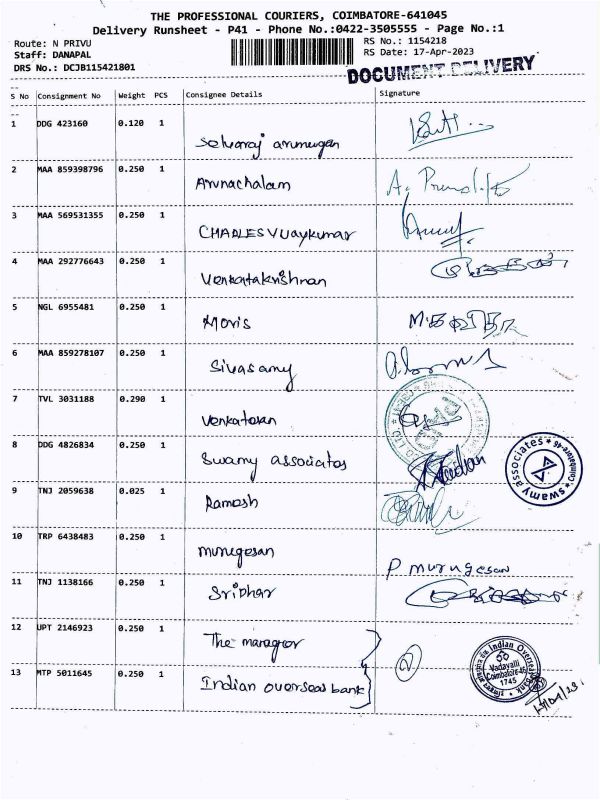 THE PROFESSIONAL COURIERS, COIMBATORE-641045
Delivery Runsheet - P41 - Phone No.:0422-3505555 - Page No.:1
Route: N PRIVU
RS No.: 1154218
Staff: DANAPAL
RS Date: 17-Apr-2023
DRS No.: DCJB115421801
DOCUMENT DELIVERY
S No Consignment No Weight PCS Consignee Details Signature
1 DDG 423160 0.120 1
Selvaraj arumugan
2 MAA 859398796 0.250 1
Arunachalam
3 MAA 569531355 0.250 1
CHARLES VIJAYKUMAR
4 MAA 292776643 0.250 1
Venkatakrishnan
5 NGL 6955481 0.250 1
Moris
6 MAA 859278107 0.250 1
Sivasamy
7 TVL 3031188 0.290 1
Venkatesan
8 DDG 4826834 0.250 1
Swamy associates
swamy associates * Coimbatore-45 *
9 TNJ 2059638 0.025 1
Ramesh
10 TRP 6438483 0.250 1
murugesan P murugesan
11 TNJ 1138166 0.250 1
Sridhar
12 UPT 2146923 0.250 1
The manager
2
Indian Overseas Bank
Vadavalli
Coimbatore-45
1745
13 MTP 5011645 0.250 1
Indian overseas bank